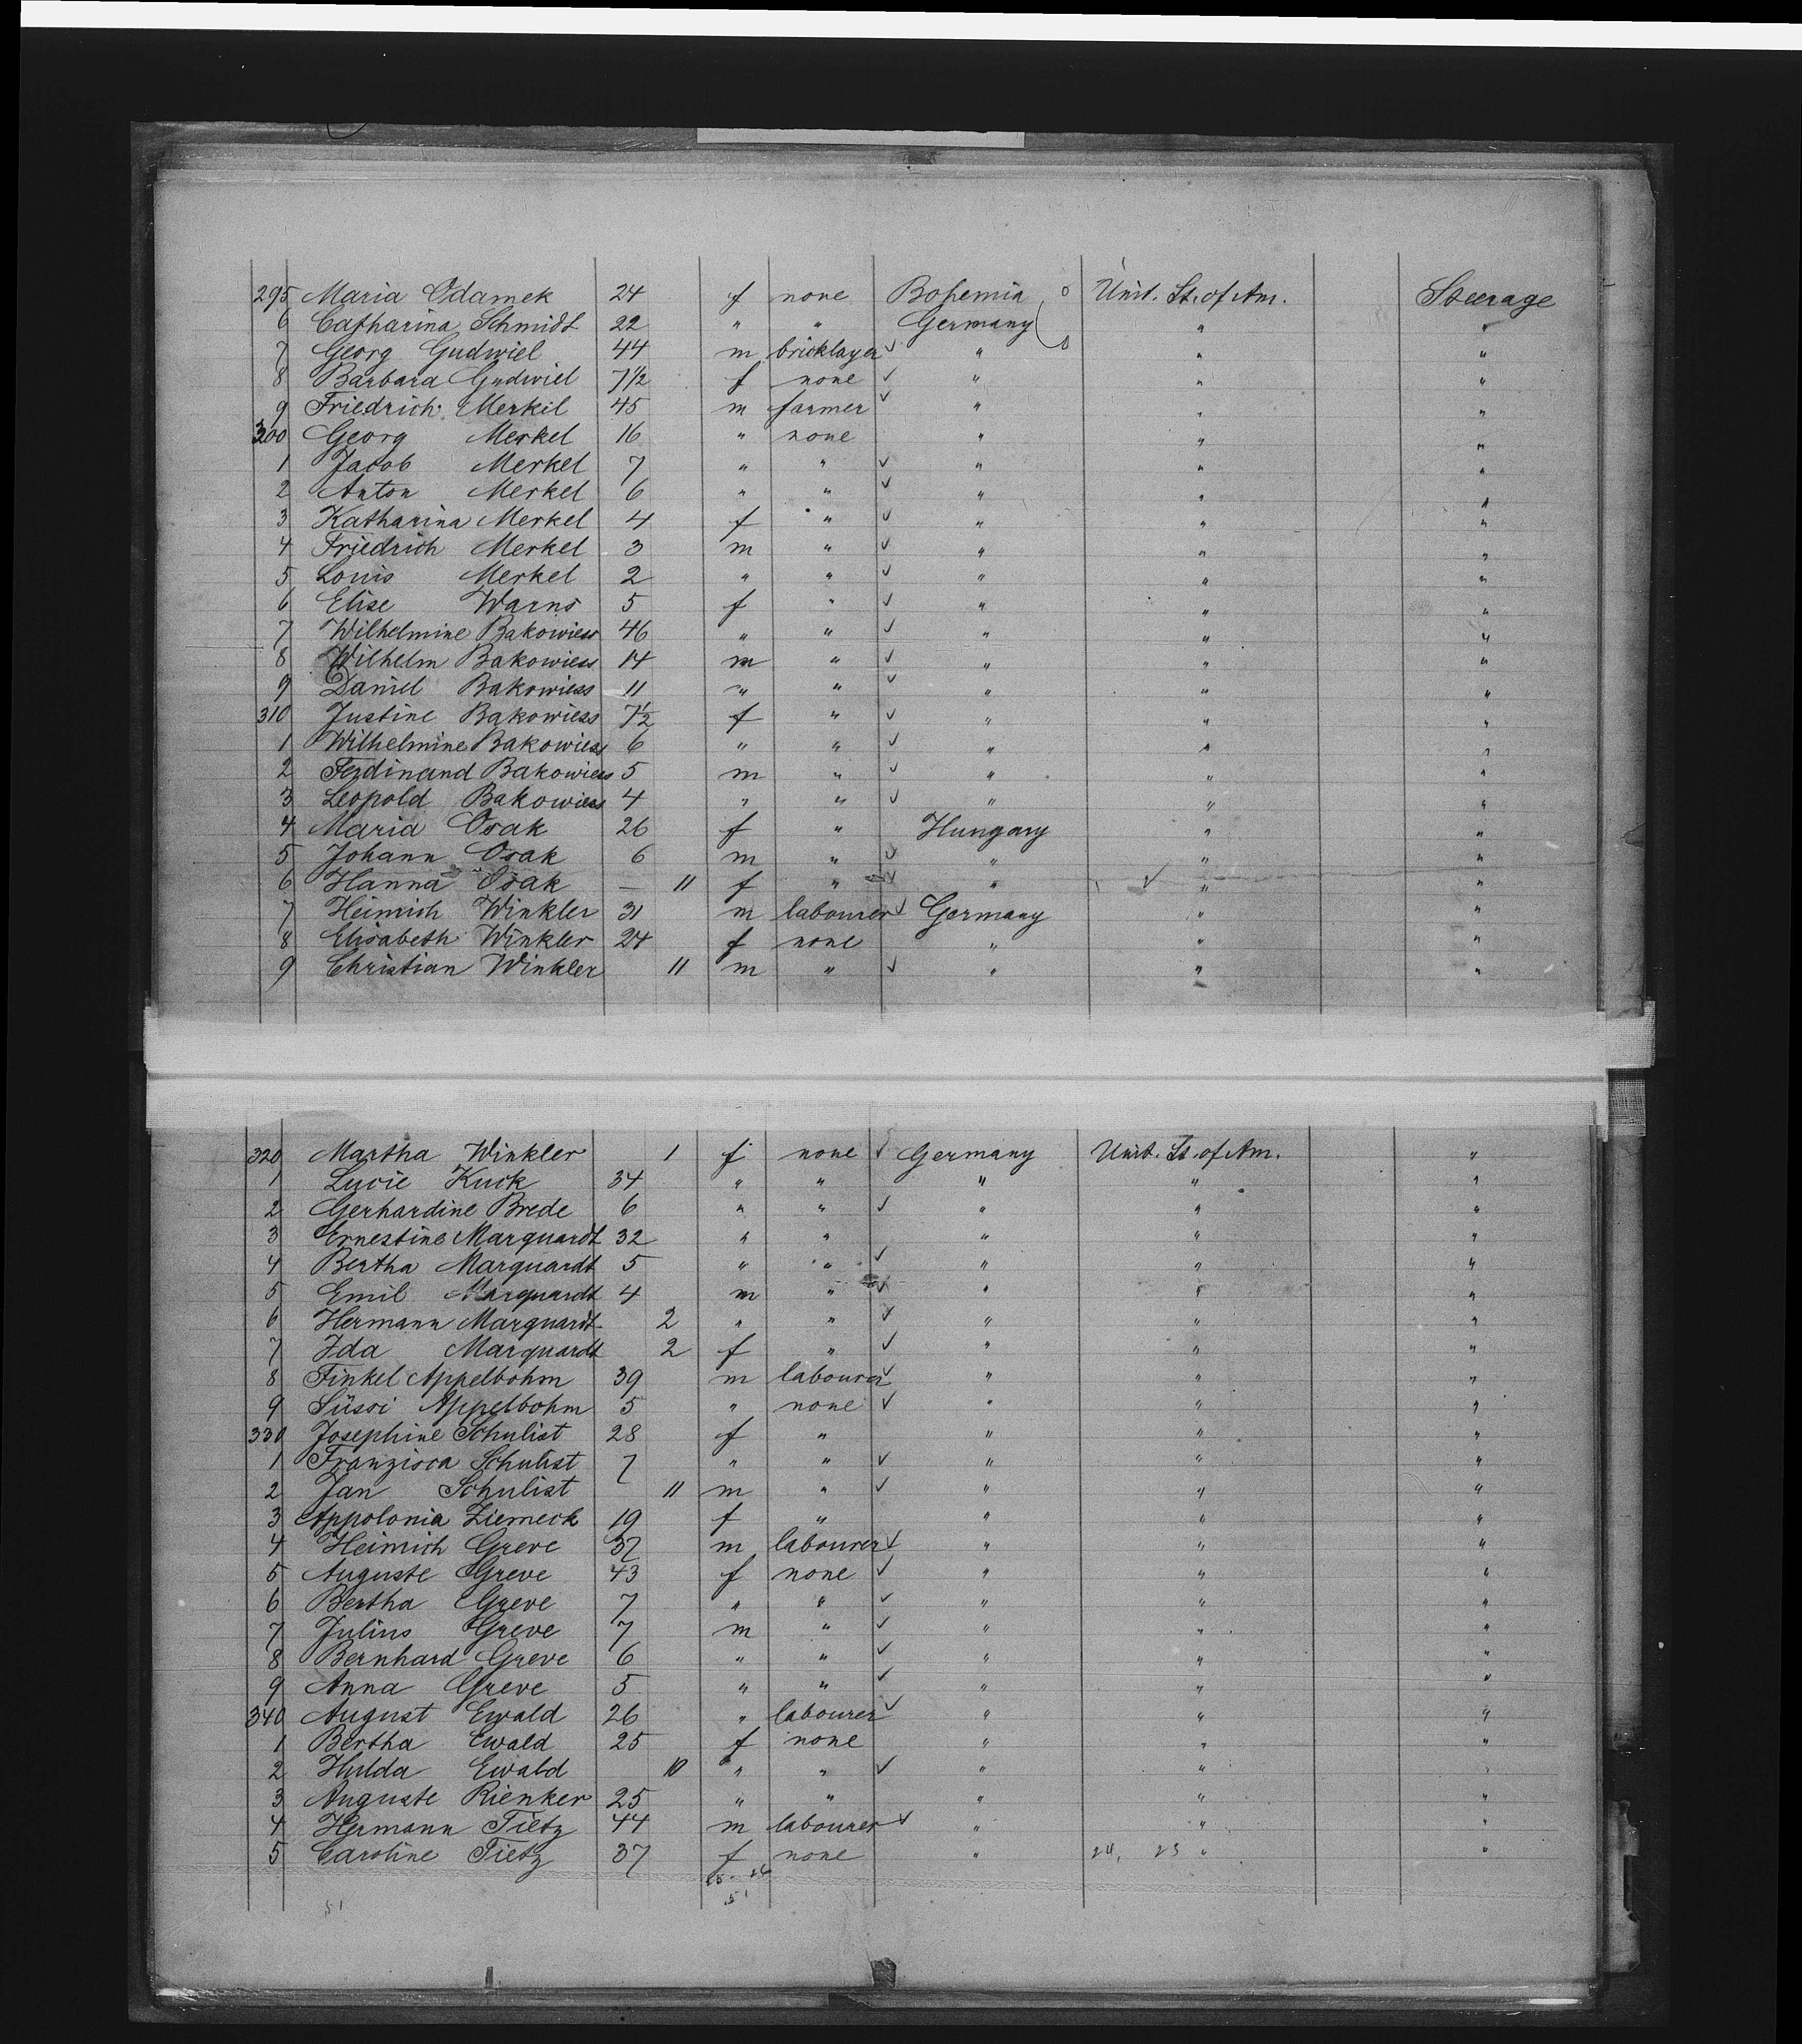 295 Maria Odamek 24 f none Bohemia Unit. St. of Am. Steerage
6 Catharina Schmidt 22 " " Germany " "
7 Georg Gudwiel 44 m bricklayer ✓ " " "
8 Barbara Gudwiel 7 1/2 f none ✓ " " "
9 Friedrich Merkil 45 m farmer ✓ " " "
300 Georg Merkel 16 " none " " "
1 Jacob Merkel 7 " " ✓ " " "
2 Anton Merkel 6 " " ✓ " " "
3 Katharina Merkel 4 f " ✓ " " "
4 Friedrich Merkel 3 m " ✓ " " "
5 Louis Merkel 2 " " ✓ " " "
6 Elise Warns 5 f " ✓ " " "
7 Wilhelmine Bakowiess 46 " " ✓ " " "
8 Wilhelm Bakowiess 14 m " ✓ " " "
9 Daniel Bakowiess 11 " " ✓ " " "
310 Justine Bakowiess 7 1/2 f " ✓ " " "
1 Wilhelmine Bakowiess 6 " " ✓ " " "
2 Ferdinand Bakowiess 5 m " ✓ " " "
3 Leopold Bakowiess 4 " " ✓ " " "
4 Maria Osak 26 f " Hungary " "
5 Johann Osak 6 m " ✓ " " "
6 Hanna Osak — 11 f " ✓ " ✓ " "
7 Heinrich Winkler 31 m labourer ✓ Germany " "
8 Elisabeth Winkler 24 f none " " "
9 Christian Winkler 11 m " ✓ " " "
320 Martha Winkler 1 f none ✓ Germany Unit. St. of Am. "
1 Lucie Kuck 34 " " " " "
2 Gerhardine Brede 6 " " ✓ " " "
3 Ernestine Marquardt 32 " " " " "
4 Bertha Marquardt 5 " " ✓ " " "
5 Emil Marquardt 4 m " ✓ " " "
6 Hermann Marquardt 2 " " ✓ " " "
7 Ida Marquardt 2 f " ✓ " " "
8 Finkel Appelbohm 39 m labourer ✓ " " "
9 Süssi Appelbohm 5 " none ✓ " " "
330 Josephine Schulist 28 f " " " "
1 Franzisca Schulist 7 " " ✓ " " "
2 Jan Schulist 11 m " ✓ " " "
3 Appolonia Ziemeck 19 f " " " "
4 Heinrich Greve 37 m labourer ✓ " " "
5 Auguste Greve 43 f none ✓ " " "
6 Bertha Greve 7 " " ✓ " " "
7 Julius Greve 7 m " ✓ " " "
8 Bernhard Greve 6 " " ✓ " " "
9 Anna Greve 5 " " ✓ " " "
340 August Ewald 26 " labourer ✓ " " "
1 Bertha Ewald 25 f none " " "
2 Hulda Ewald 10 " " ✓ " " "
3 Auguste Rienker 25 " " " " "
4 Hermann Tietz 44 m labourer ✓ " " "
5 Caroline Tietz 37 f none " 24, 23 " "
51 51